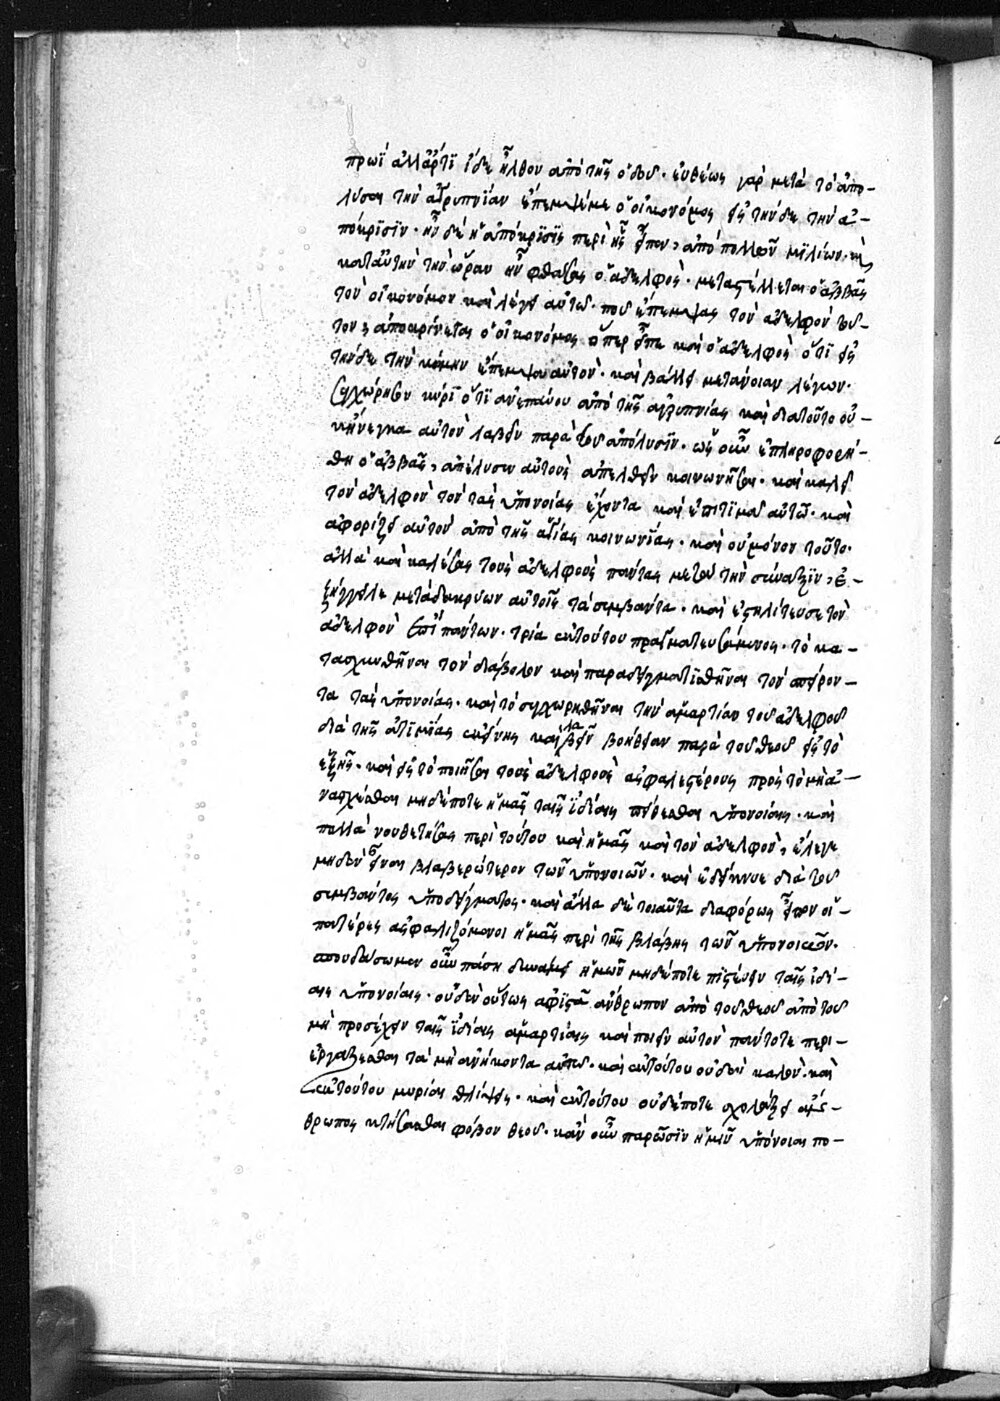 πρωῒ ἀλλἄρτϊ ἰδὲ ἦλθον ἀπὸ τῆς ὁδοῦ· εὐθέως γὰρ μετὰ τὸ ἀπο-
λῦσαι τὴν ἀγρυπνΐαν ἔπεμψέ με ὁ οἰκονόμος εἰς τήνδε τὴν ἀ-
πόκρϊσϊν· ἦν δὲ ἡ ἀπόκρϊσϊς περὶ ἧς εἶπεν, ἀπὸ πολλῶν μϊλίων· καὶ
κατ αὐτὴν τὴν ὥραν ἦν φθάσας ὁ ἀδελφὸς· μεταστέλλεται ὁ ἀββᾶς
τὸν οἰκονόμον καὶ λέγει αὐτῶ· ποῦ ἔπεμψας τὸν ἀδελφὸν τοῦ-
τον; ἀποκρίνεται ὁ οἰκονόμος ὅπερ εἶπε καὶ ὁ ἀδελφὸς ὅτϊ εἰς
τήνδε τὴν κώμην ἔπεμψα αὐτὸν· καὶ βάλλει μετάνοιαν λέγων·
συγχώρησον κύρϊ ὅτϊ ἀνεπαύου ἀπὸ τῆς ἀγρυπνίας καὶ διατοῦτο οὐ-
κ ἤνεγκα αὐτὸν λαβεῖν παρὰ σοῦ ἀπόλυσϊν· ὡς οὖν ἐπληροφορή-
θη ὁ ἀββᾶς, ἀπέλυσεν αὐτοὺς ἀπελθεῖν κοινωνῆσαι· καὶ καλεῖ
τὸν ἀδελφὸν τὸν τὰς ὑπονοίας ἔχοντα καὶ ἐπιτϊμᾶ αὐτῶ· καὶ
ἀφορίζει αὐτὸν ἀπὸ τῆς ἁγίας κοινωνΐας· καὶ οὐ μόνον τοῦτο·
ἀλλὰ καὶ καλέσας τοὺς ἀδελφοὺς πάντας μετὰ τὴν σύναξϊν, ἐ-
ξήγγειλε μετὰ δακρύων αὐτοῖς τὰ συμβάντα· καὶ ἐστηλίτευσε τὸν
ἀδελφὸν ἐπὶ πάντων· τρία ἐκ τούτου πραγματευσάμενος· τὸ κα-
ταισχυνθῆναι τὸν διάβολον καὶ παραδειγματϊσθῆναι τὸν σπείρον-
τα τὰς ὑπονοίας· καὶ τὸ συγχωρηθῆναι τὴν ἁμαρτίαν τοῦ ἀδελφοῦ
διὰ τῆς ἀτϊμΐας ἐκείνης καὶ λαβεῖν βοήθειαν παρὰ τοῦ θεοῦ εἰς τὸ
ἑξῆς· καὶ εἰς τὸ ποιῆσαι τοὺς ἀδελφοὺς ἀσφαλεστέρους πρὸς τὸ μὴ ἀ-
νασχέσθαι μηδέποτε ἡμᾶς ταῖς ἰδίαις πείθεσθαι ὑπονοίαις· καὶ
πολλὰ νουθετήσας περὶ τούτου καὶ ἡμᾶς καὶ τὸν ἀδελφὸν, ἔλεγε
μηδὲν εἶναι βλαβερώτερον τῶν ὑπονοιῶν· καὶ ἐδείκνυε διὰ τοῦ
συμβάντος ὑποδείγματος· καὶ ἄλλα δὲ τοιαῦτα διαφόρως εἶπον οἱ
πατέρες ἀσφαλιζόμενοι ἡμᾶς περὶ τῆς βλάβης τῶν ὑπονοιῶν·
σπουδάσωμεν οὖν πάση δυνάμει ἡμῶν μηδέποτε πϊστεύειν ταῖς ἰδί-
αις ὑπονοίαις· οὐδὲν οὕτως ἀφϊστᾶ ἄνθρωπον ἀπὸ τοῦ θεοῦ ἀπὸ τοῦ
μὴ προσέχειν ταῖς ἰδίαις ἁμαρτίαις καὶ ποιεῖν αὐτὸν πάντοτε περι-
εργάζεσθαι τὰ μὴ ἀνήκοντα αὐτῶ· καὶ ἐκ τούτου οὐδὲν καλὸν· καὶ
ἐκ τούτου μυρίαι θλίψεις· καὶ ἐκ τούτου οὐδέποτε σχολάζει ἄν-
θρωπος κτήσασθαι φόβον θεοῦ· κἂν οὖν παρῶσϊν ἡμῖν ὑπόνοιαι πο-